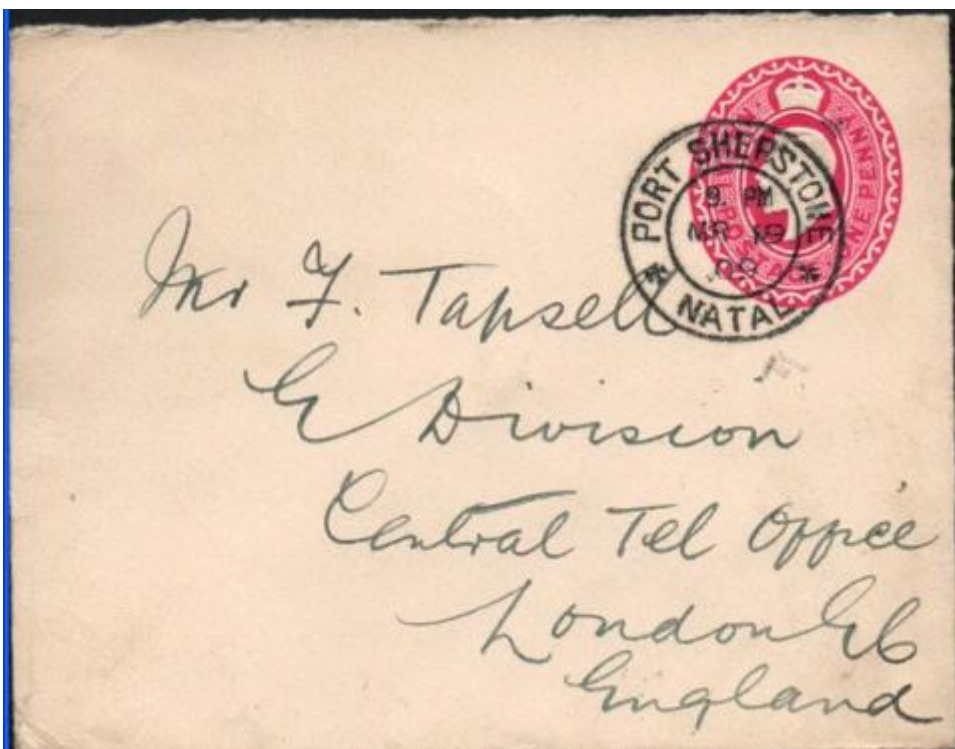 PORT SHEPSTONE
9. PM
MR 19
09
* NATAL *
ONE PENNY
Mr F. Tapsell
E Division
Central Tel Office
London EC
England